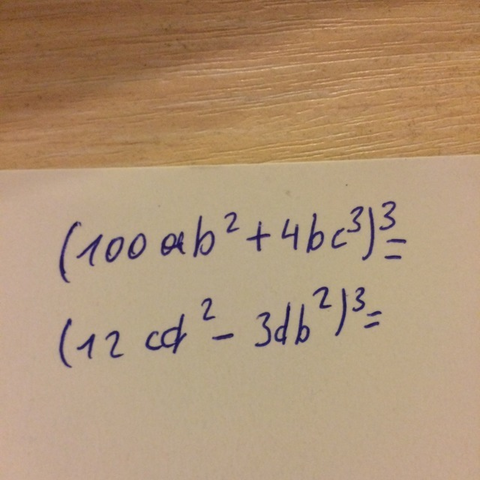 (100ab² + 4bc³)³ =
(12cd² - 3db²)³ =